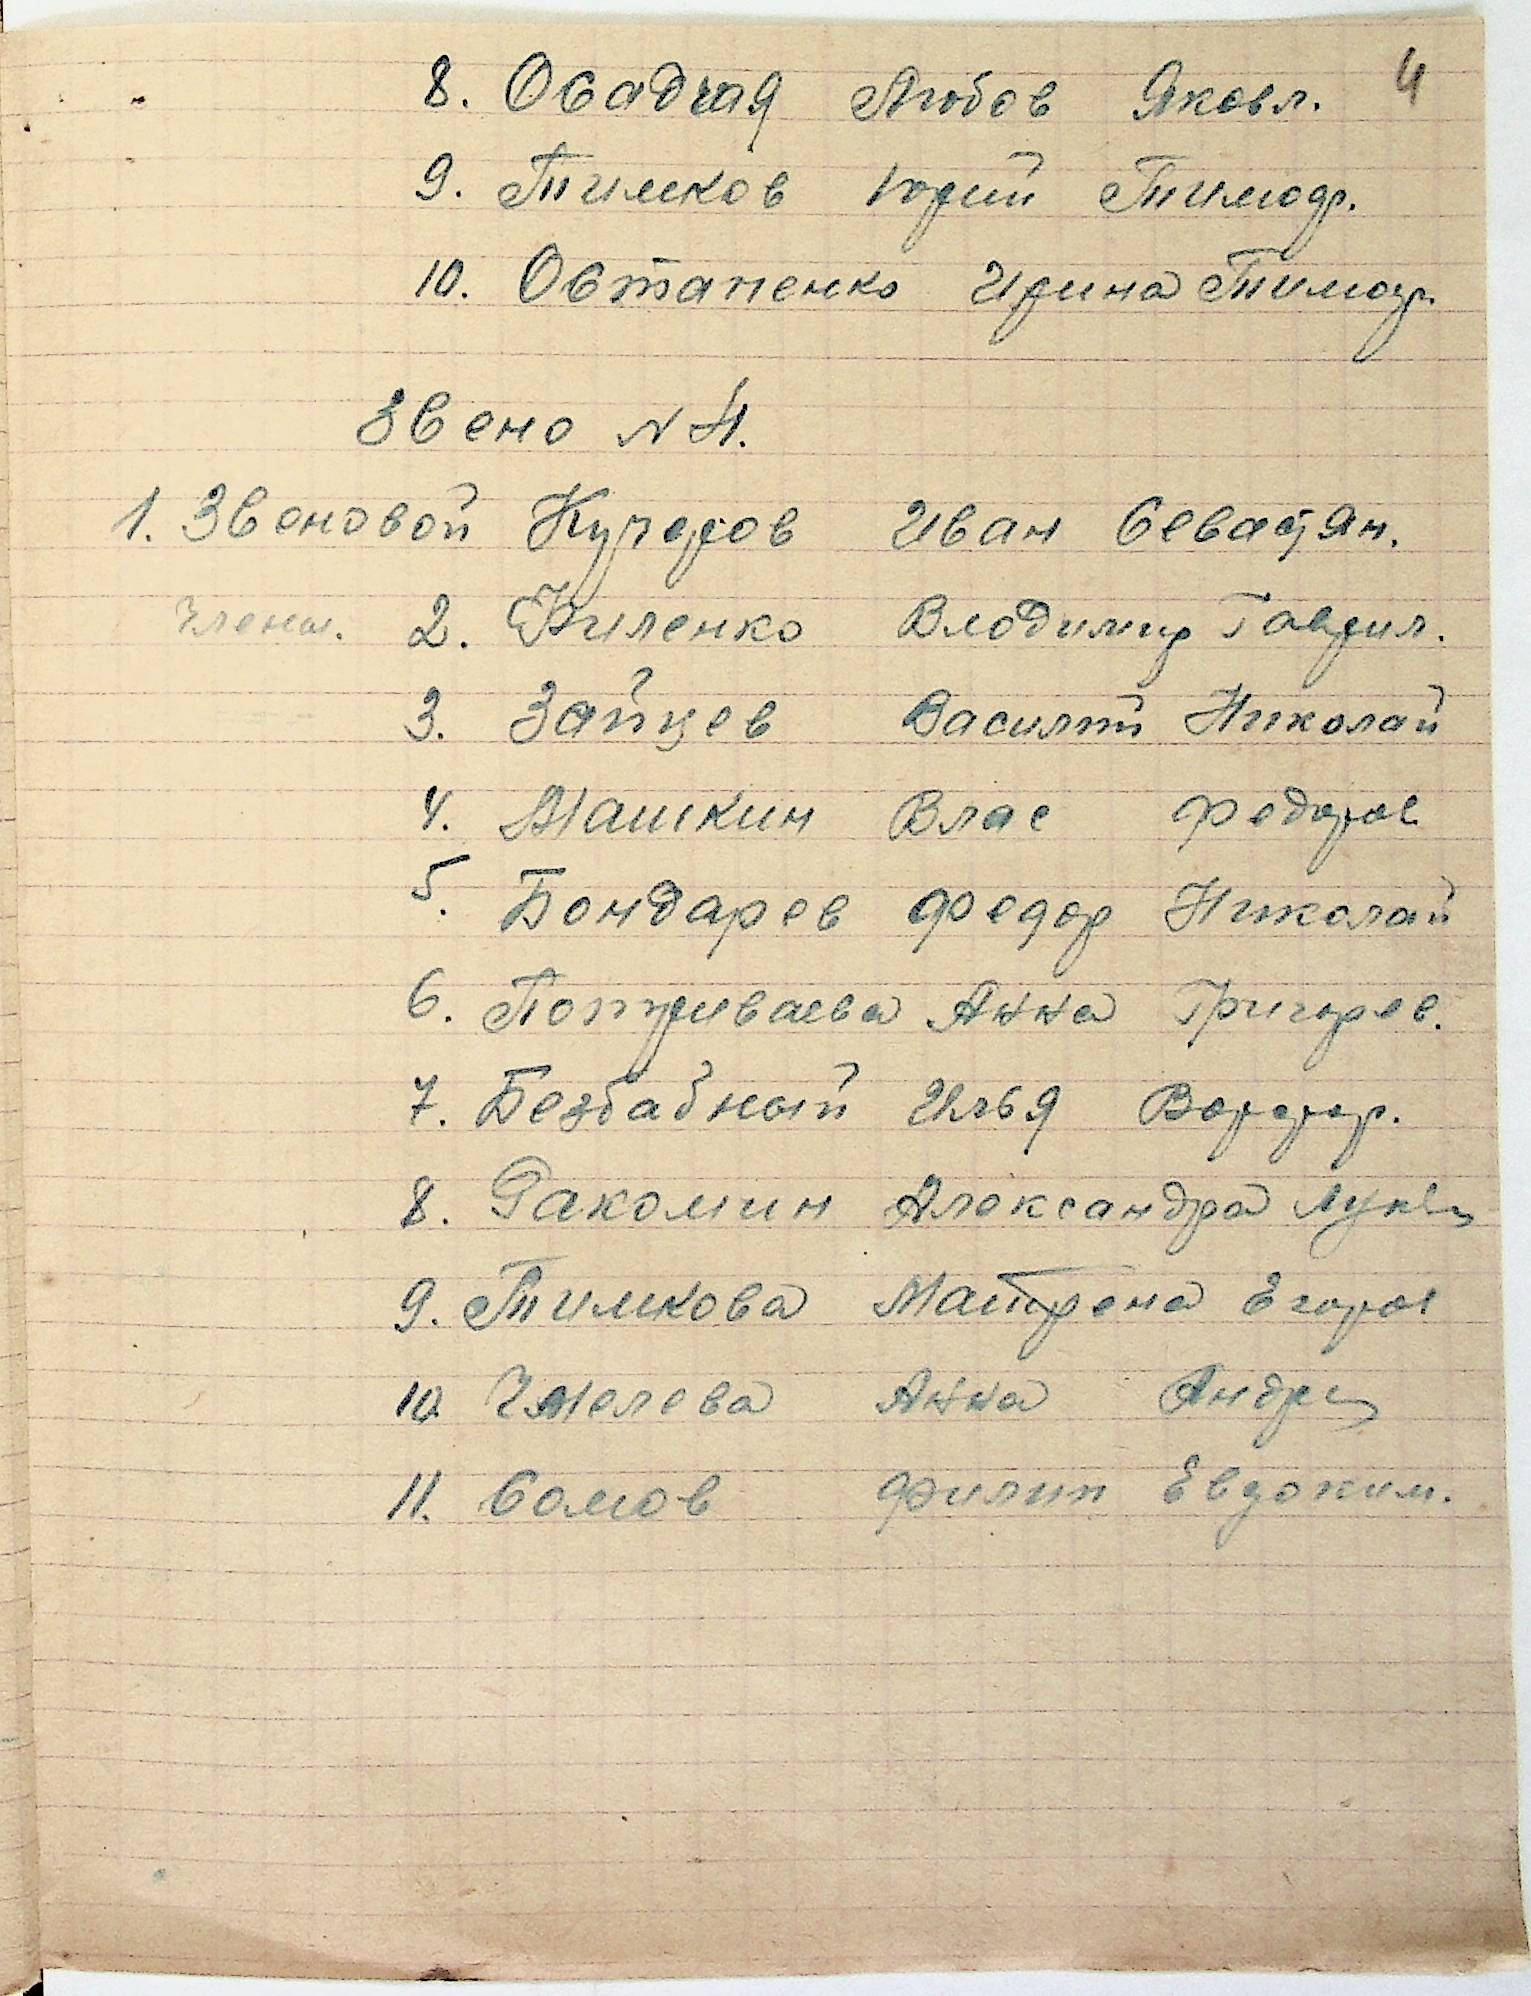 4
8. Осадчая Любов Яковл.
9. Тимков Юрий Тимофр.
10. Остапенко Ирина Тимофр.
Звено N 4.
1. Звеновой Кучеров Иван Севастян.
Члены. 2. Филенко Владимир Гаврил.
3. Зайцев Василий Николай
4. Машкин Влас Федоров
5. Бондарев Федор Николай
6. Потуриваева Анна Григорев.
7. Безбабный Илья
8. Ракомин Александра
9. Тимкова Матрена Егоров
10. Чмелева Анна Андре
11. Сомов Филип Евдоким.